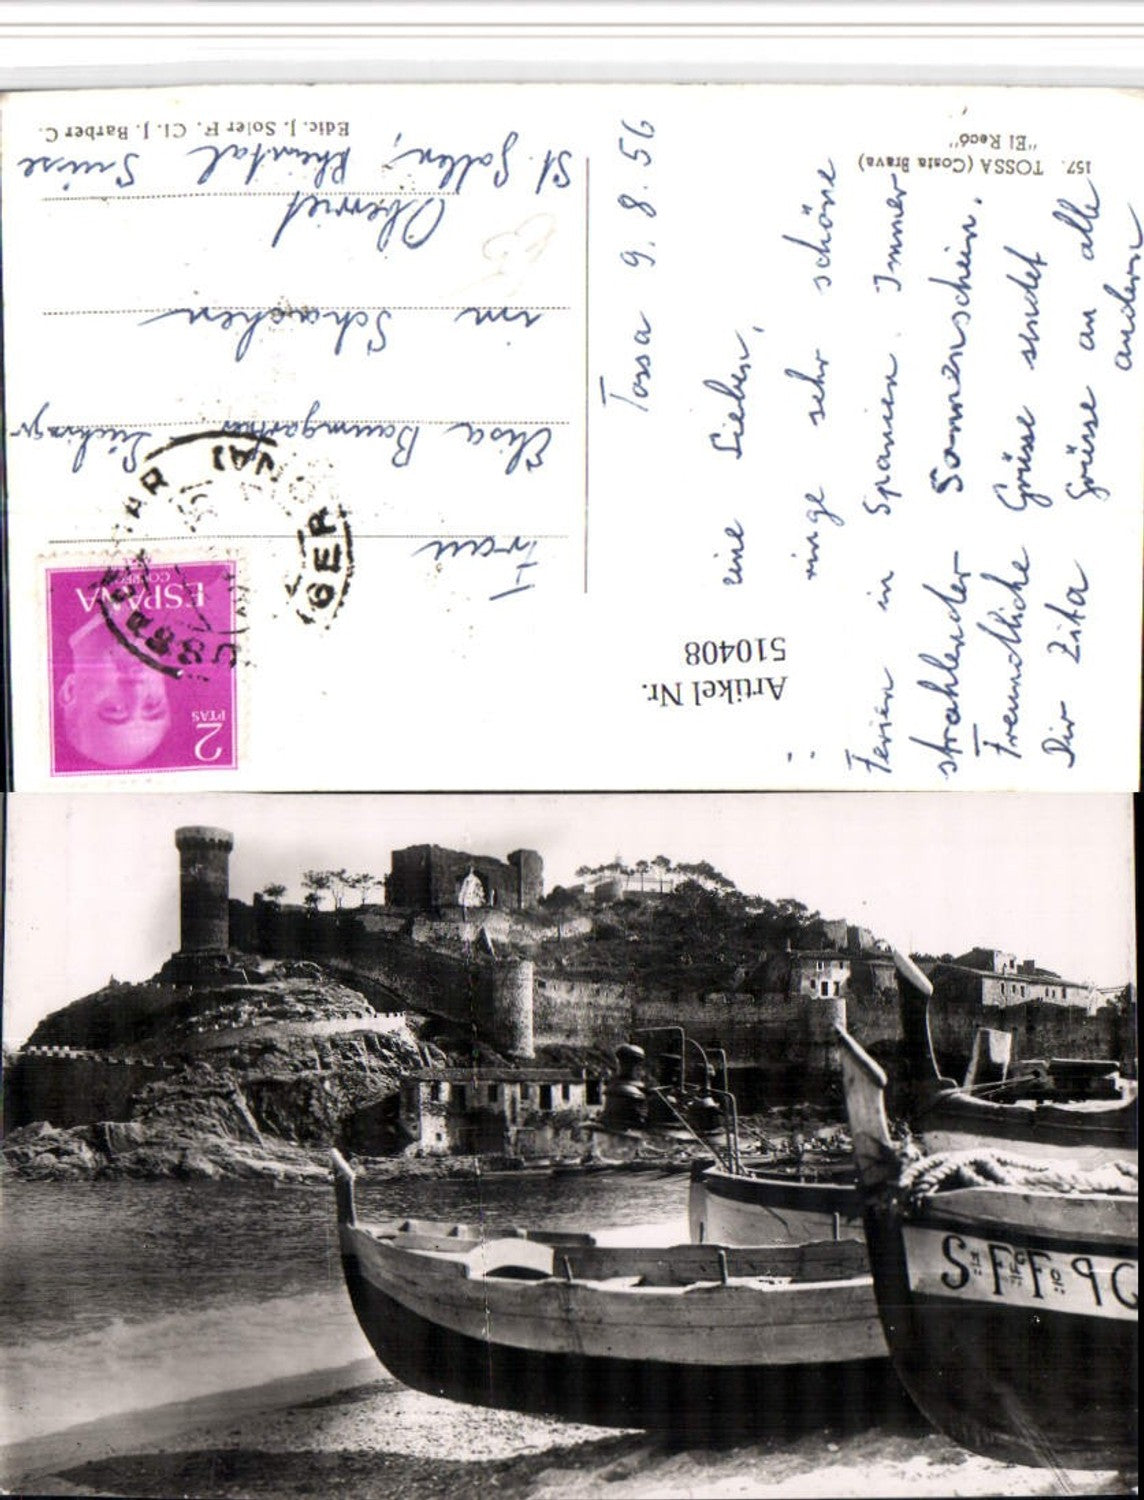 157. TOSSA (Costa Brava)
"El Recó"
Tossa 9. 8. 56
eine Lieben,
ringe sehr schöne
Ferien in Spanien. Immer
strahlender Sonnenschein.
Freundliche Grüsse sendet
Dir Zita Grüsse an alle
andern
Artikel Nr.
510408
Edic. J. Soler F. Cl. J. Barber C.
2
PTAS
ESPAÑA
CORREOS
Frau
Elisa Baumgartner
im Schachen
Oberriet
St. Gallen, Rheintal Suisse
S F F 90